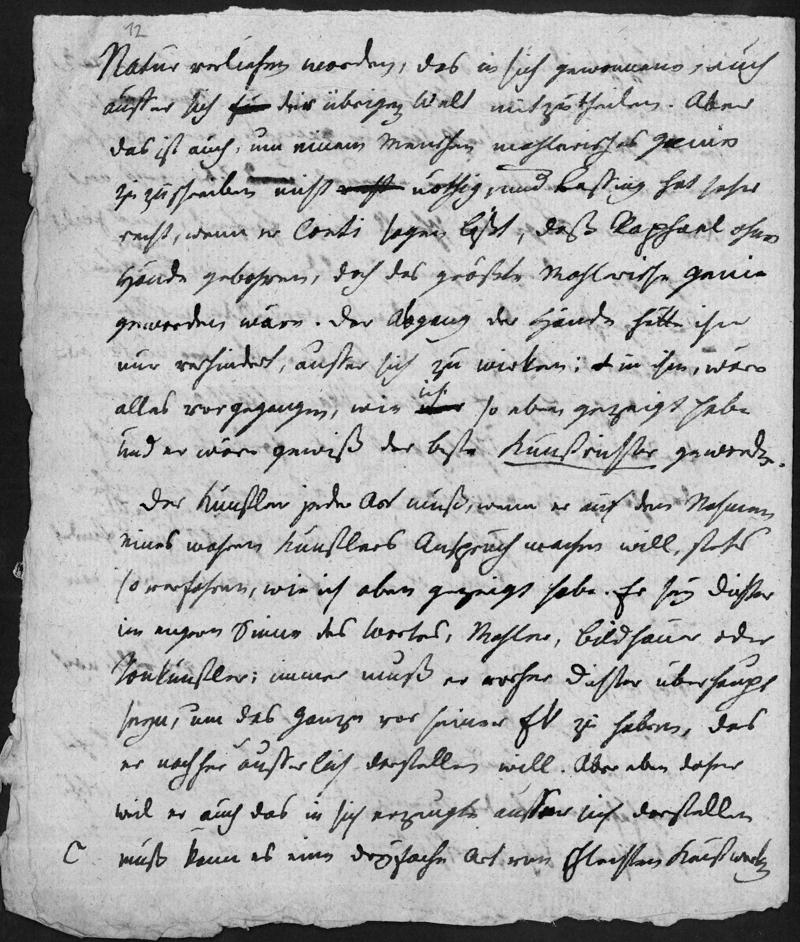 12
Natur verliehen worden, das in sich gewonnene, auch
ausser sich der übrigen Welt mitzutheilen. Aber
das ist auch, um einem Menschen mahlerisches Genie
zuzuschreiben nicht nöthig, und Lessing hat sehr
recht, wenn er Conti sagen läßt, daß Raphael ohne
Hände gebohren, doch das größte Mahlerische Genie
geworden wäre. Der Abgang der Hände hätte ihn
nur verhindert, ausser sich zu wirken; in ihm, wäre
alles vorgegangen, wie ich so eben gezeigt habe
und er wäre gewiß der beste Kunstrichter geworden.
Der Künstler jeder Art muß, wenn er auf den Nahmen
eines wahren Künstlers Anspruch machen will, stets
so verfahren, wie ich oben gezeigt habe. Er sey Dichter
im engern Sinne des Wortes, Mahler, Bildhauer oder
Tonkünstler; immer muß er vorher Dichter überhaupt
seyn, um das Ganze vor seiner zu haben, das
er nachher äusserlich darstellen will. Aber eben daher
weil er auch das in sich erzeugte ausser sich darstellen
C muß kann es eine dreyfache Art von schlechten Kunstwerken